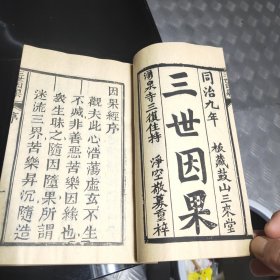 同治九年 板藏鼓山三來堂
三世因果
湧泉寺三復住持 淨空敬募重梓
因果經序
觀夫此心浩蕩虛玄不生
不滅非善惡苦樂因緣也
衆生昧之隨因隨果所謂
迷流三界苦樂昇沉隨造
序